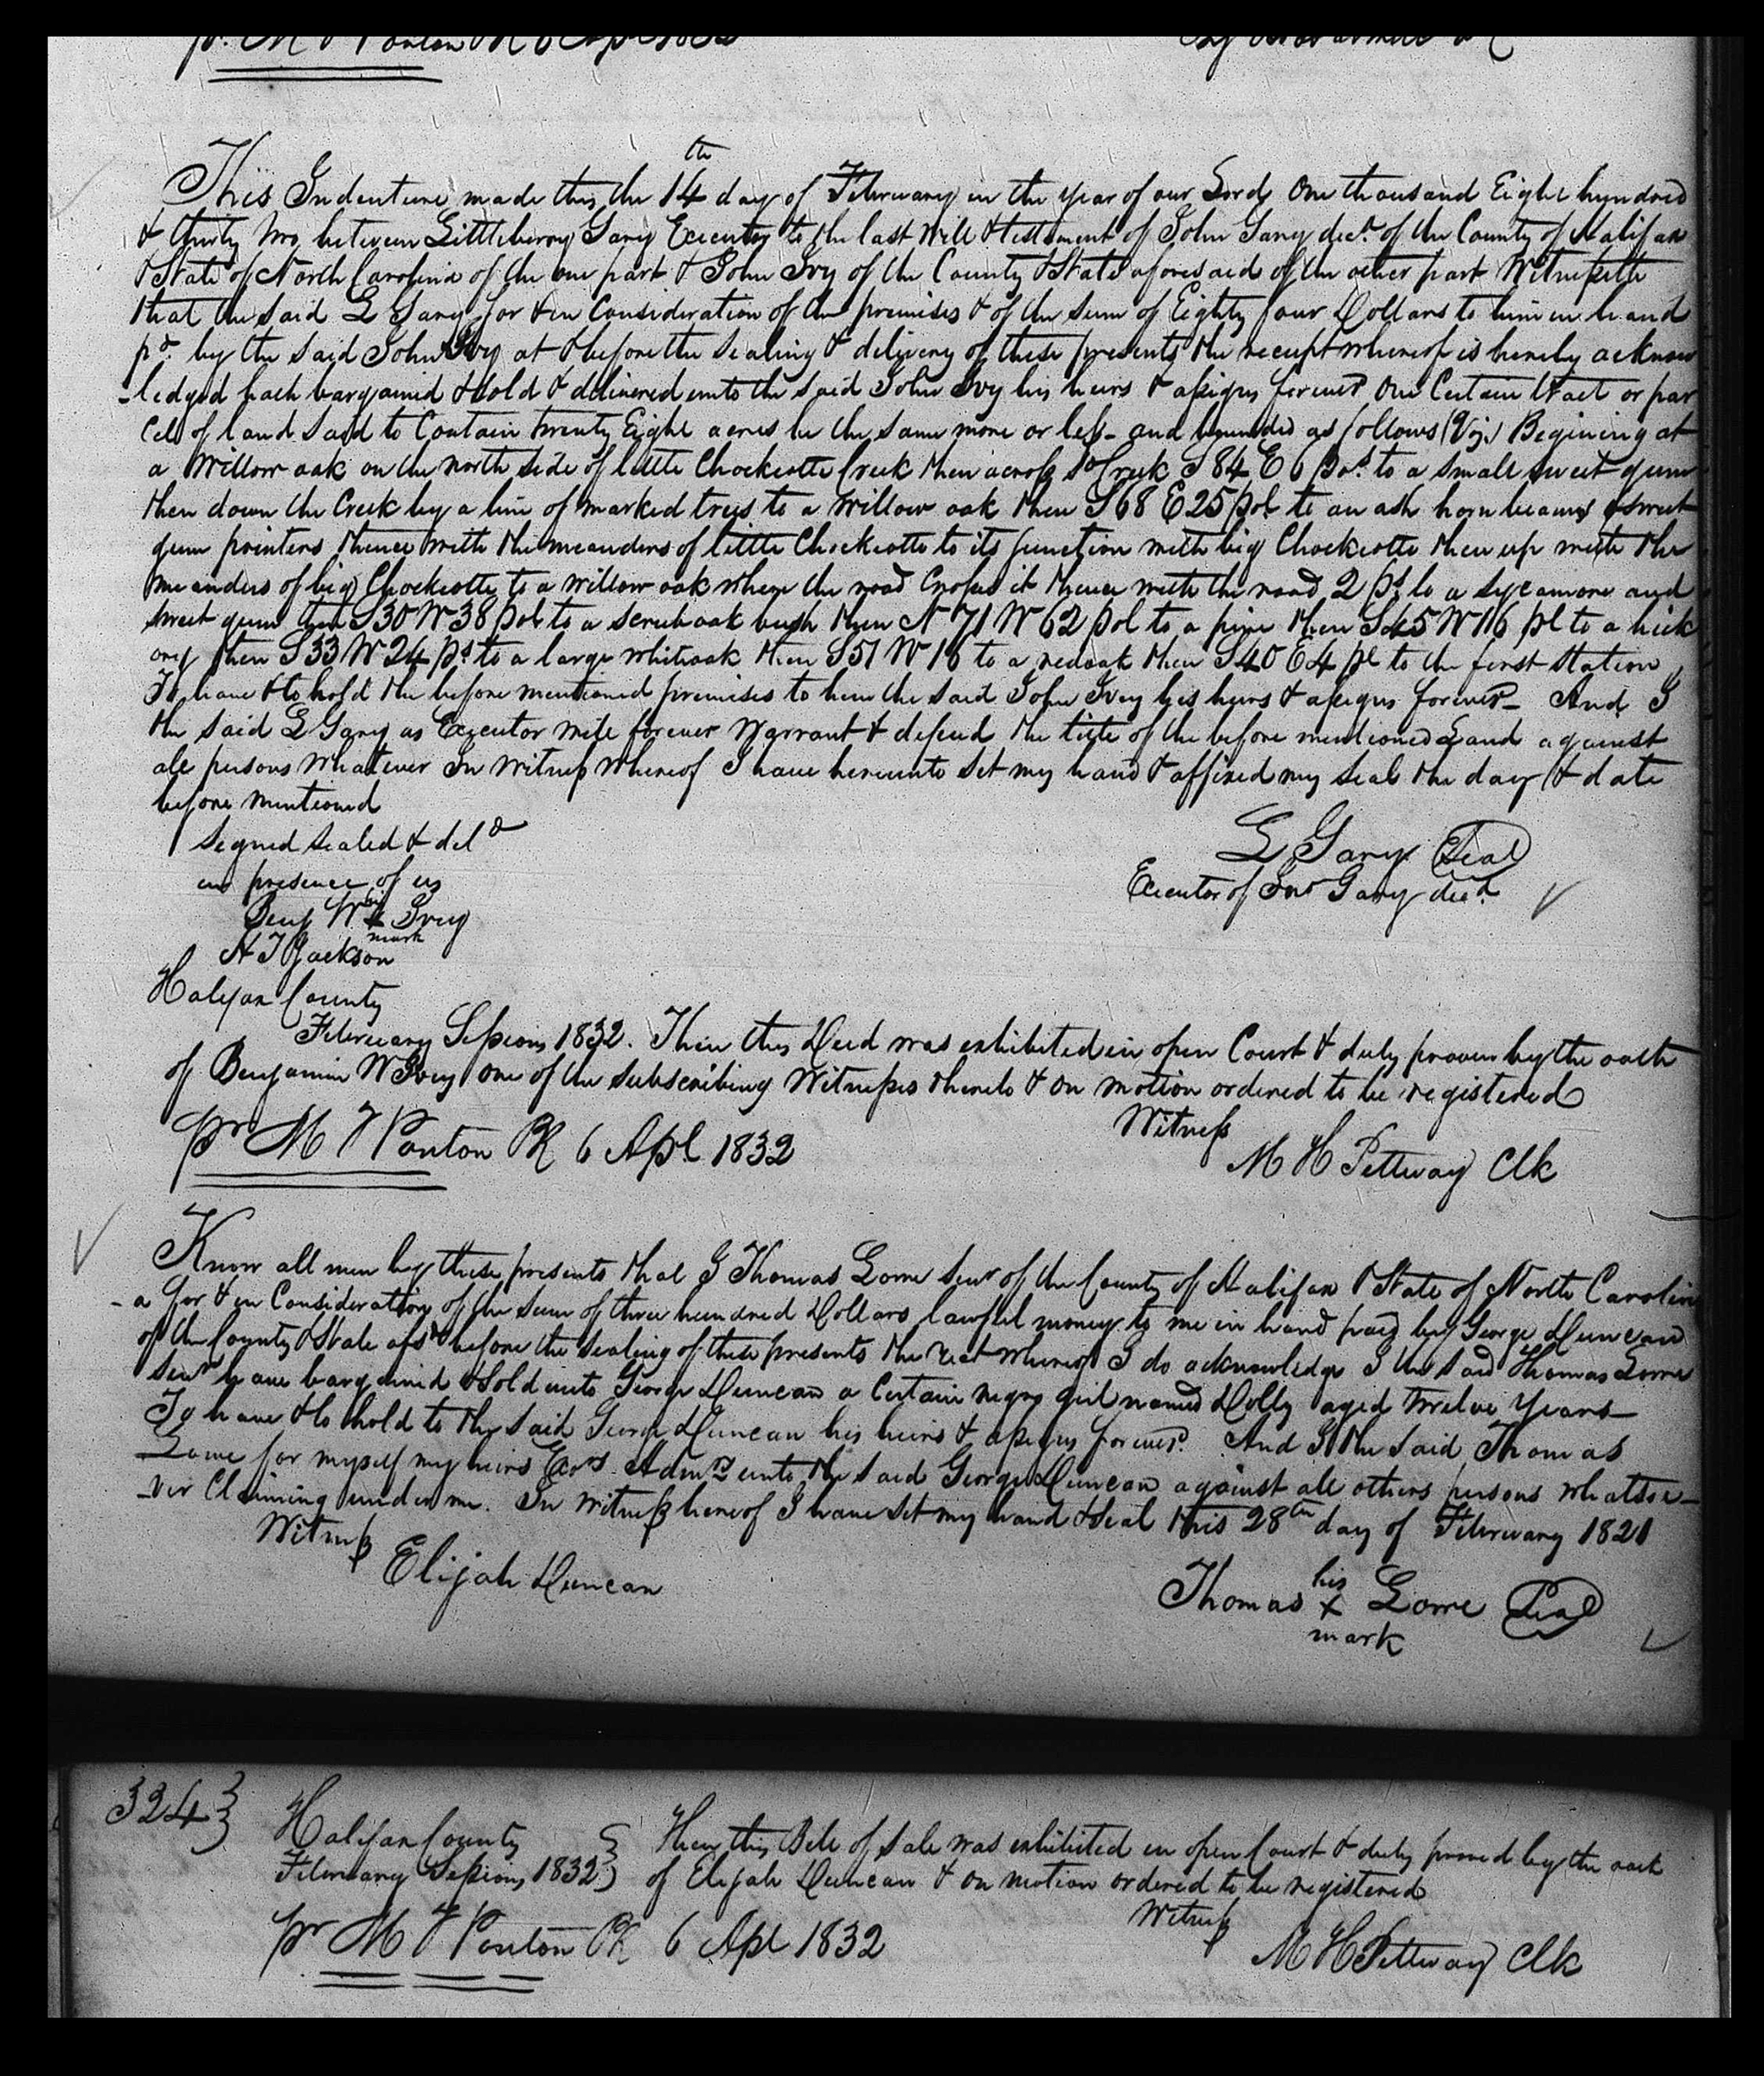 pr. M F Ponton
This Indenture made this the 14th day of February in the year of our Lord One thousand Eight hundred
& thirty two between Littleberry Gary Executor to the last Will & testament of John Gary decd. of the County of Halifax
& State of North Carolina of the one part & John Ivy of the County & State aforesaid of the other part Witnesseth
that the said L Gary for & in Consideration of the premises & of the sum of Eighty four Dollars to him in hand
pd. by the said John Ivy at & before the sealing & delivery of these presents the receipt whereof is hereby acknow
-ledged hath bargained & sold & delivered unto the said John Ivy his heirs & assigns forever One Certain tract or par
cel of land said to Contain twenty Eight acres be the same more or less - and bounded as follows (Viz) Begining at
a Willow oak on the north side of little Chockeotte Creek then across sd Creek S 84 E 6 pos. to a small sweet gum
then down the Creek by a line of marked trees to a willow oak then S 68 E 25 pol to an ash horn beam & sweet
gum pointers thence with the meanders of little Chockeotte to its junction with big Chockeotte then up with the
meanders of big Chockeotte to a willow oak where the road Crosses it thence with the road 2 ps to a sycamore and
sweet gum then S 30 W 38 pol to a scrub oak bush then N 71 W 62 pol to a pine then S 45 W 116 pl to a hick
ory then S 33 W 24 ps to a large whiteoak then S 51 W 16 to a redoak then S 40 E 4 pl to the first station
To have & to hold the before mentioned premises to him the said John Ivey his heirs & assigns forever - And I
the said L Gary as Executor will forever Warrant & defend the title of the before mentioned Land against
all persons whatever In Witness Whereof I have hereunto set my hand & affixed my seal the day & date
before mentioned
Signed sealed & deld
in presence of us
L Gary Seal
Executor of Jno Gary decd.
Benj W his x Ivey
mark
H J Jackson
Halifax County
February Sessions 1832. Then this Deed was exhibited in open Court & duly proven by the oath
of Benjamin W Ivey one of the subscribing Witnesses thereto & on motion ordered to be registered
Witness
pr M F Ponton PR 6 Apl 1832
M H Pettway Clk
Know all men by these presents that I Thomas Lowe Senr of the County of Halifax & State of North Carolin
-a for & in Consideration of the sum of three hundred Dollars lawful money to me in hand paid by George Duncan
of the County & State afsd & before the sealing of these presents the rect whereof I do acknowledge I the said Thomas Lowe
Senr have bargained & sold unto George Duncan a Certain negro girl named Dolly aged twelve Years -
To have & to hold to the said George Duncan his heirs & assigns forever. And I the said Thomas
Lowe for myself my heirs Exors Admrs unto the said George Duncan against all others persons whatsoe-
-ver Claiming under me. In witness hereof I have set my hand & seal this 28th day of February 1821
Witness
Elijah Duncan
Thomas his x Lowe Seal
mark
324}
Halifax County
February Sessions 1832 } Then this Bill of sale was exhibited in open Court & duly proved by the oath
of Elijah Duncan & on motion ordered to be registered
Witness
pr M F Ponton PR 6 Apl 1832
M H Pettway Clk